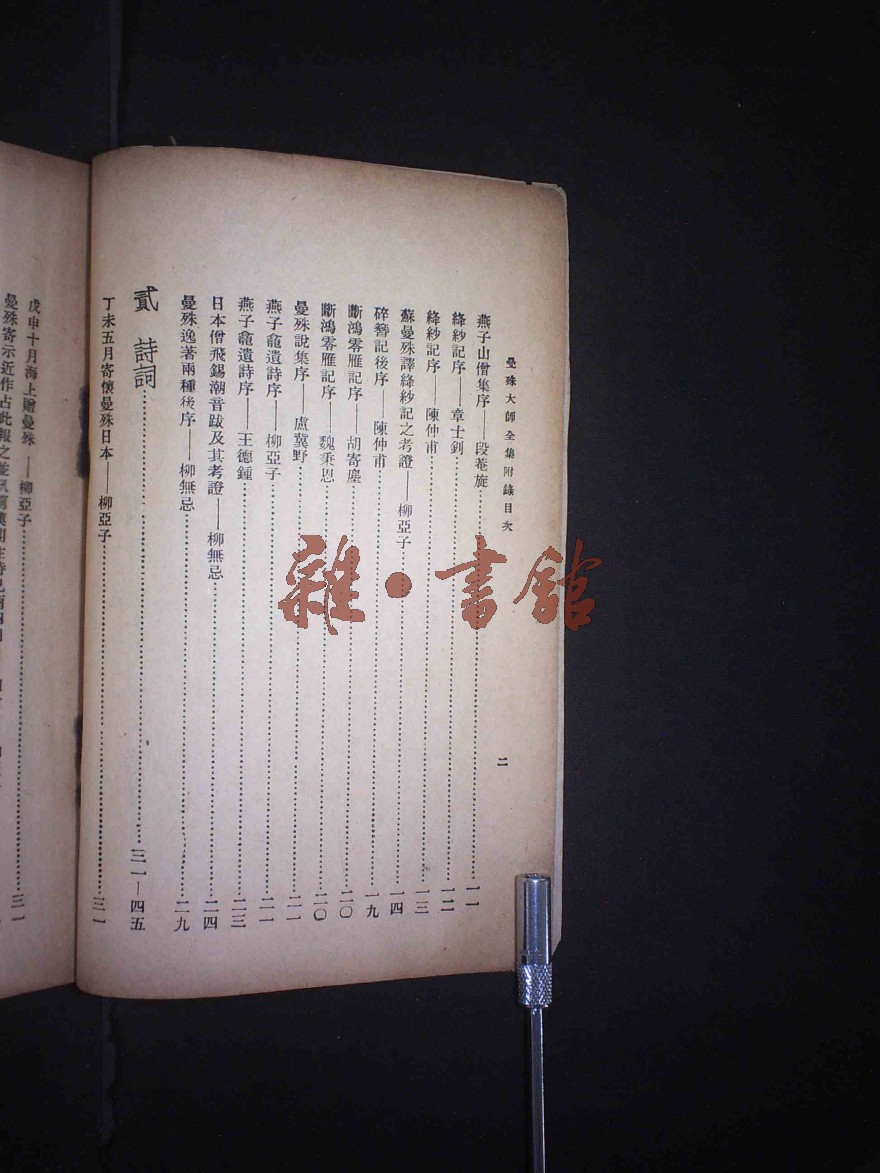 曼殊大師全集附錄目次
二
燕子山僧集序——段菴旋……一一
絳紗記序——章士釗……一二
絳紗記序——陳仲甫……一三
蘇曼殊譯絳紗記之考證——柳亞子……一四
碎簪記後序——陳仲甫……一九
斷鴻零雁記序——胡寄塵……二〇
斷鴻零雁記序——魏秉恩……二〇
曼殊說集序——盧冀野……二一
燕子龕遺詩序——柳亞子……二一
燕子龕遺詩序——王德鍾……二三
日本僧飛錫潮音跋及其考證——柳無忌……二四
曼殊逸著兩種後序——柳無忌……二九
貳 詩詞……三一—四五
丁未五月寄懷曼殊日本——柳亞子……三一
戊申十月海上贈曼殊——柳亞子……三一
曼殊寄示近作占此報之並
雜·書館